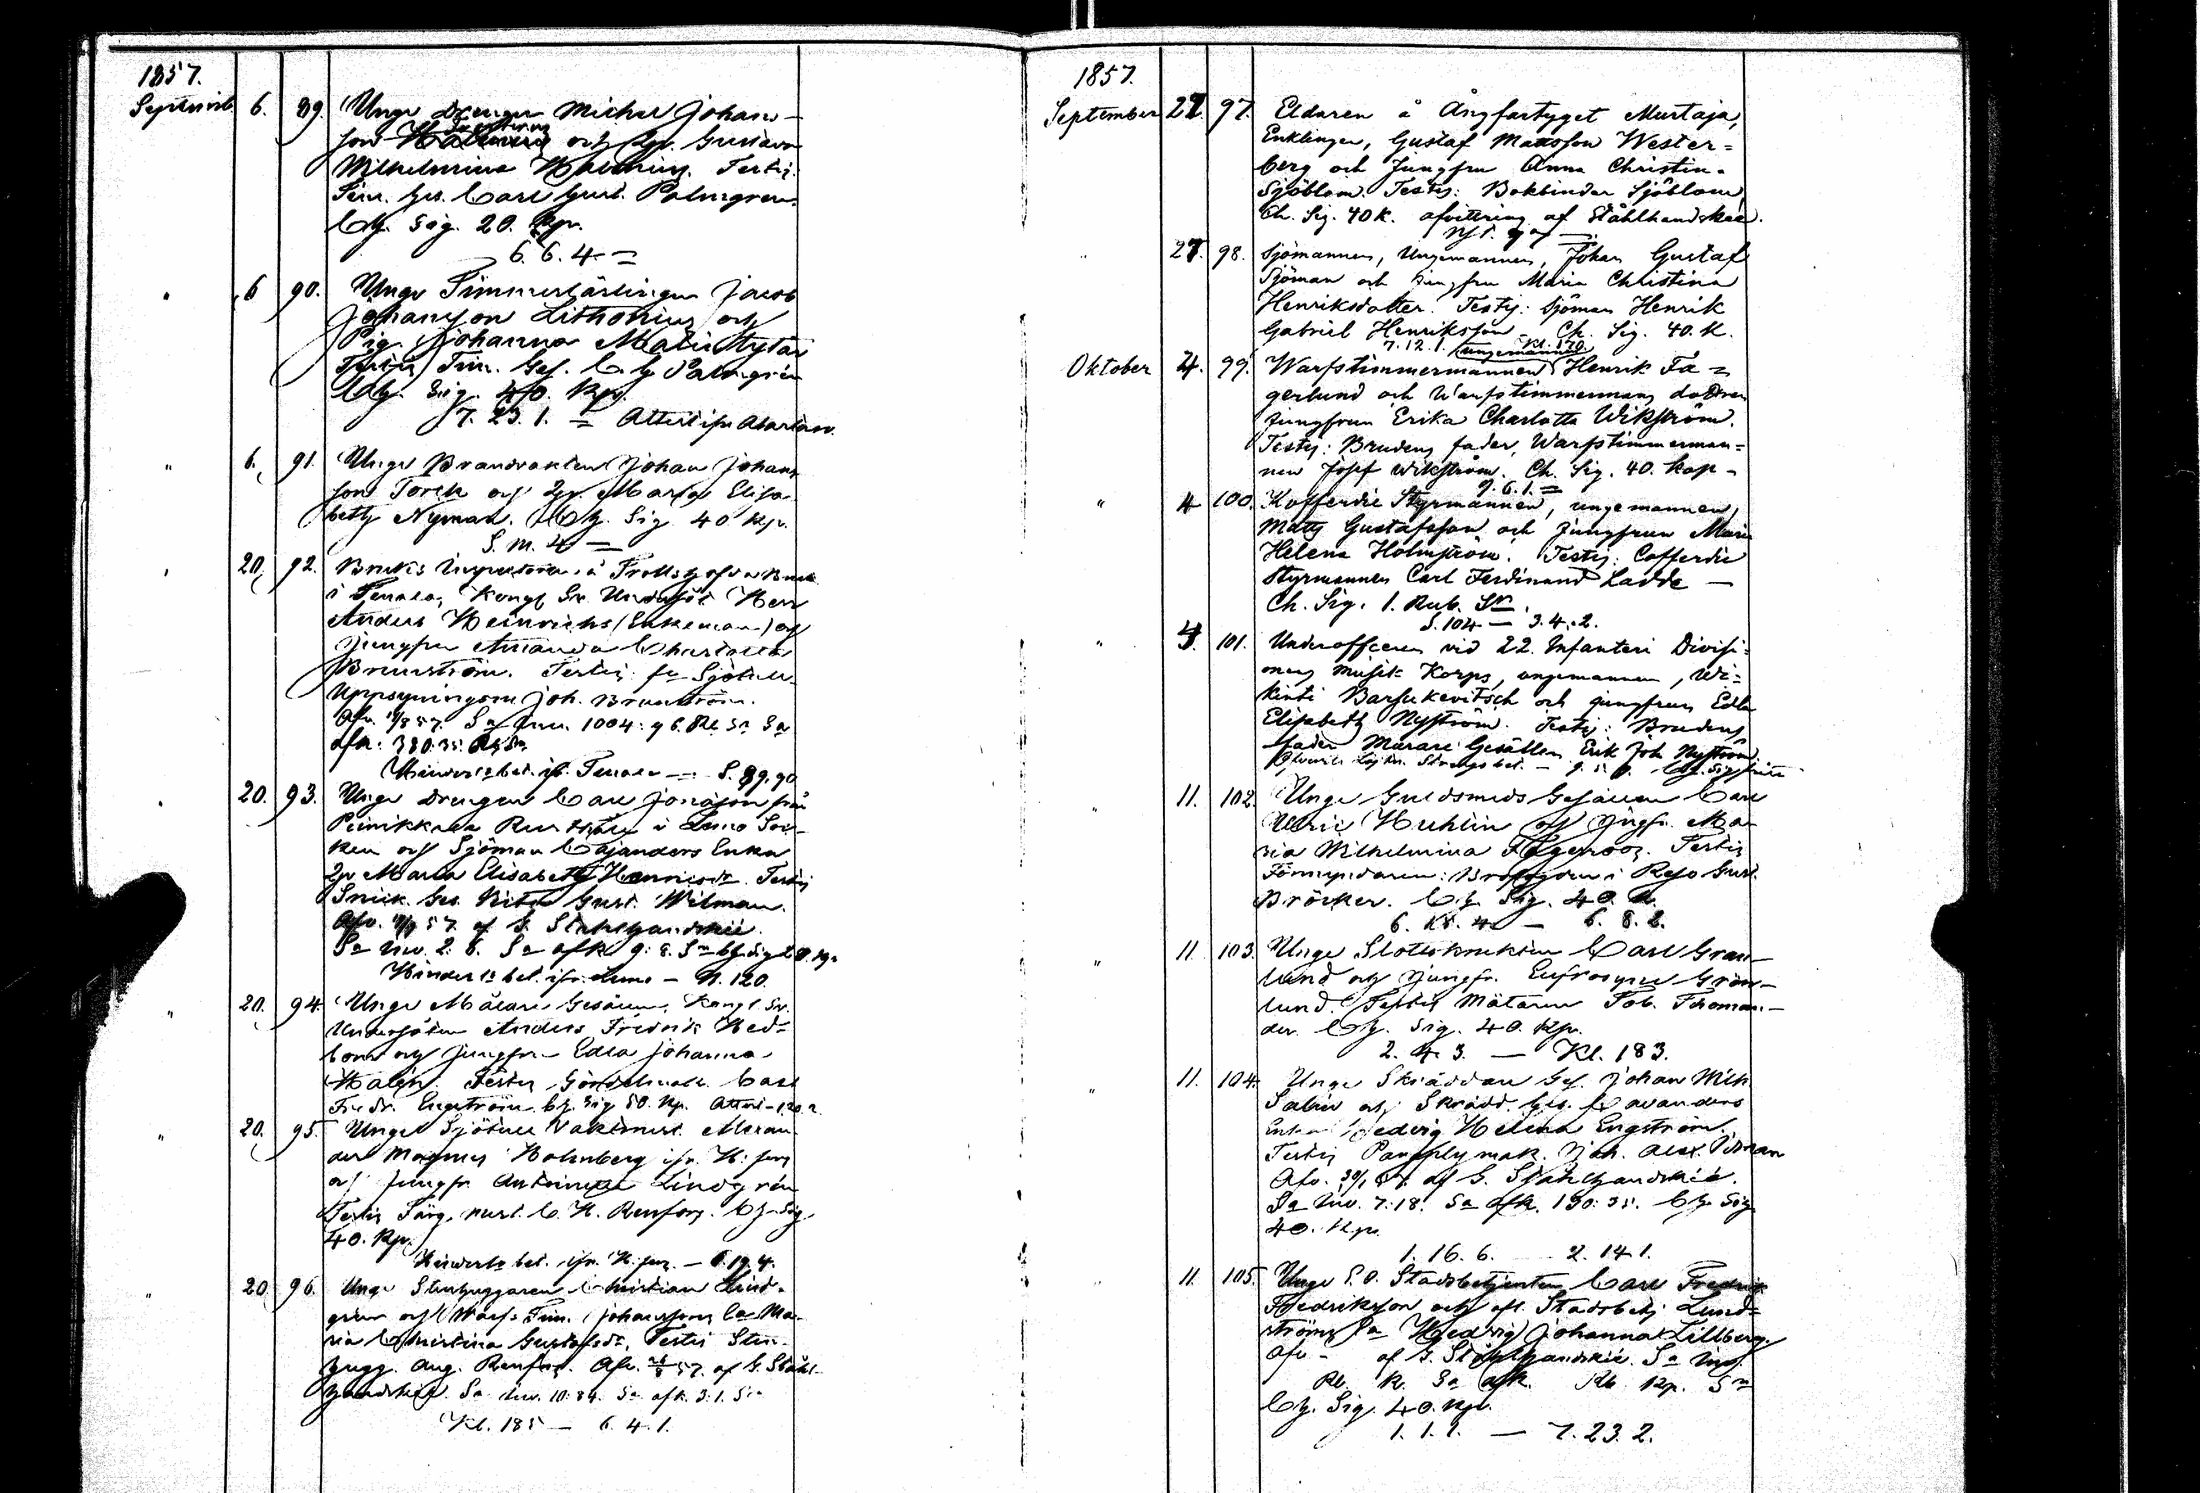 1857.
Septemb 6. 89. Unge Drengen Michel Johans-
son och Pig. Gustava
Wilhelmina Testis:
Timr. Ges. Carl Gust. Palmgren.
Ch. Sig. 20. Kp.
6. 6. 4. =
" 6 90. Unge Timmerlärlingen Jacob
Johansson Lithonius och
Pig. Johanna Matintytär
Testis Timr. Ges. C. G Palmgrén
Ch. Sig. 40. Kp.
7. 23. 1. = Attest ifr
" 6. 91. Unge Brandvakten Johan Johans
son Torck och Maria Elisa
beth Nyman. Ch. Sig. 40 Kp.
S. M. 4 —
" 20. 92. Bruks Inspektoren å Bruk
i Tenala, Kongl Sv. Undersåt Herr
Anders Heinrichs (Enkeman) och
Jungfru Amanda Charlotta
Brunström. Testis: fr Sjötull
Uppsyningsm Joh. Brunström.
Afv. 57. Sa Inv. 1004: 96. Rb Sr Sa
afk: 380:35.
Hinderls bet. ifr. Tenala — S. 89. 90
" 20. 93. Unge Drengen Carl Jonasson från
i Lemo Soc-
ken och Sjöman Cajanders Enka
Maria Elisabeth Testis
Snick. Ges. Gust. Wilman.
Afv. 57. af G. Stålhandské.
Sa Inv. 2. 8. Sa afk 9: 8. Ch Sig
Hinderls bet. ifr. Lemo — N. 120.
" 20. 94. Unge Målare Gesällen, Kongl Sv.
Undersåten Anders Fredrik Hed-
bom och Jungfru Edla Johanna
Testis Carl
Fredr. Engström. Ch. Sig 50. Kp. Attest
" 20. 95. Unge Sjötull Vaktmest. Alexan
der Magnus Holmberg ifr. H:fors
och Jungfr Lindgrén
Testis Färg. C. H. Renfors. Ch. Sig
40. Kp.
Hinderls bet. ifr. H:fors. — 19. 4.
" 20 96. Unge Stenhuggaren Christian Lind-
gren och Warfs Tim. Johanssons Ma-
ria Christina Gustafsdr. Testis Sten-
hugg. Aug. Renfors. Afv. 57. af G. Stål-
handské. Sa. Inv. 10:84. Sa afk. 3:1. Sr
Kl. 185 — 6. 4. 1.
1857.
September 27. 97. Eldaren å Ångfartyget Murtaja,
Enklingen, Gustaf Mattsson Wester=
berg och Jungfru Anna Christina
Sjöblom. Testis: Bokbindar Sjöblom
Ch. Sig. 40 K. afvittring af Stålhandské.
" 27. 98. Sjömannen, Ungemannen, Johan Gustaf
Sjöman och Jungfru Maria Christina
Henriksdotter. Testis: Sjöman Henrik
Gabriel Henriksson — Ch. Sig. 40. K.
7. 12. 1. Kl. 170.
Oktober 4. 99. Warfstimmermannen ungemannen Henrik Fa=
gerlund och Warfstimmermans dottren
Jungfrun Erika Charlotta Wikström.
Testis: Brudens fader, Warfstimmerman=
nen Josef Wikström. Ch. Sig. 40. Kop-
9. 6. 1. =
" 4 100. Kofferdie Styrmannen, ungemannen,
Matts Gustafsson och Jungfrun Maria
Helena Holmström. Testis: Cofferdie
Styrmannen Carl Ferdinand Ladde —
Ch. Sig. 1. Rub. Sr.
S. 104 — 3. 4. 2.
" 4. 101. Underofficeren vid 22. Infanteri Divisi-
onens Musik Korps, ungemannen, Wi-
kenti Barsukevitsch och jungfrun Edla
Elisabeth Nyström. Testis: Brudens
fader Murare Gesällen Erik Joh Nyström
" 11. 102. Unge Guldsmeds Gesällen Carl
Ulric Huhlin och Jungfr. Ma-
ria Wilhelmina Fågelroos. Testis
Förmyndaren: i Reso Gust.
Bröcker. Ch. Sig. 40. K.
6. 4 — 6. 8. 2.
" 11 103. Unge Slottsknekten Carl Gran-
lund och Jungfr. Eufrosyne Grön-
lund. Testis Mätaren Tob. Thoman-
der. Ch. Sig. 40. Kp.
2. 4. 3. — Kl. 183.
" 11. 104. Unge Skräddare Ges. Johan Wilh
Salin och Skrädd. Ges. Lavanders
Enka Hedvig Helena Engström.
Testis Paraplymak. Joh. Alex.
Afv. af G. Stålhandské.
Sa Inv. 7:18. Sa afk. 130:35. Ch. Sig
40. Kp.
1. 16. 6. — 2. 14. 1.
" 11. 105. Unge Stadsbetjenten Carl Fredrik
Fredriksson och afl. Stadsbetj Lund-
ströms Hedvig Johanna Lillberg.
Afv — af G. Stålhandské. Sa Inv.
Rb. K. Sa afk. Rb. Kp. Sr
Ch. Sig. 40. Kp.
1. 1. 1. — 7. 23. 2.